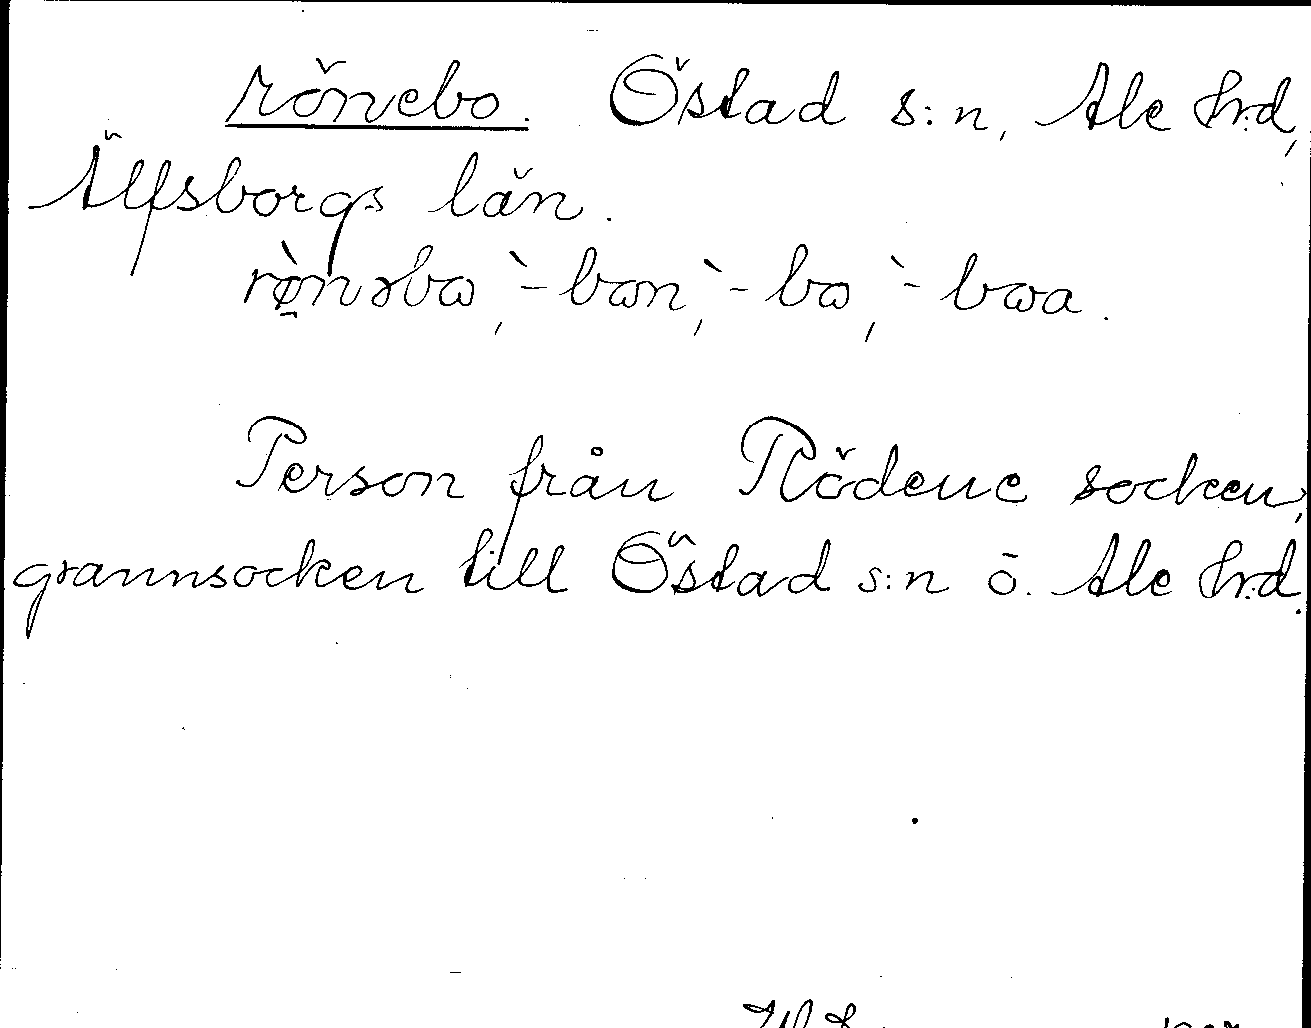 rönebo. Östad s:n, Ale hrd,
Älfsborgs län.
rø̀nəbɷ, `-bɷn, `-bɷ, `-bɷa.
Person från Rödene socken,
grannsocken till Östad s:n ö. Ale hrd.